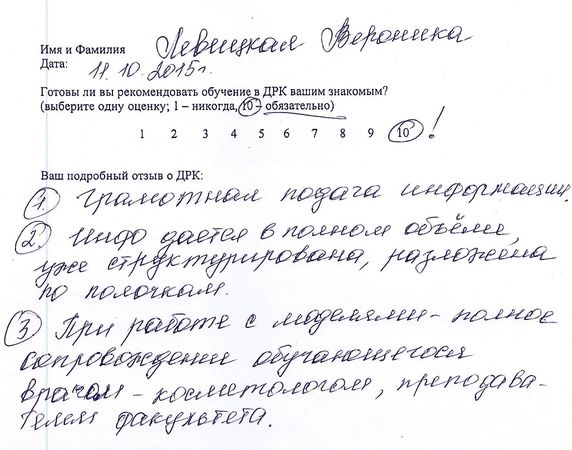 Имя и Фамилия Левицкая Вероника
Дата: 11.10.2015г.
Готовы ли вы рекомендовать обучение в ДРК вашим знакомым?
(выберите одну оценку; 1 – никогда, 10 – обязательно)
1 2 3 4 5 6 7 8 9 10 !
Ваш подробный отзыв о ДРК:
1. Грамотная подача информации.
2. Инфо дается в полном объёме,
уже структурирована, разложена
по полочкам.
3 При работе с моделями – полное
сопровождение обучающегося
врачом – косметологом, преподава-
телем факультета.